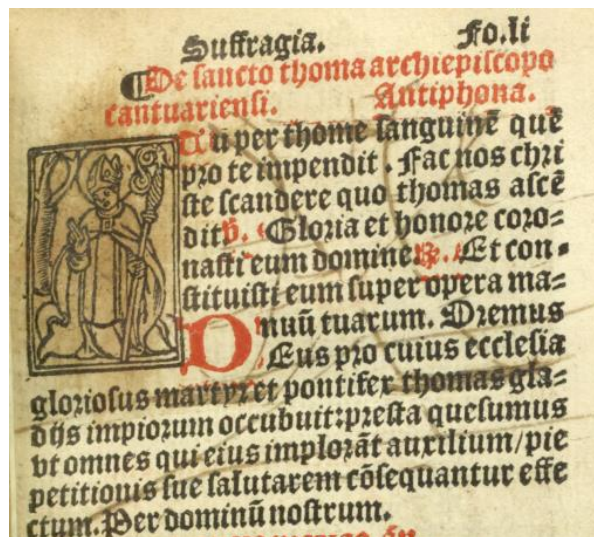 Suffragia. Fo.li
¶De sancto thoma archiepiscopo
cantuariensi. Antiphona.
Tu per thome sanguinē quē
pro te impendit. Fac nos chri
ste scandere quo thomas ascē
dit. v̄. Gloria et honore coro=
nasti eum domine. R̄. Et con=
stituisti eum super opera ma=
nuū tuarum. Oremus
DEus pro cuius ecclesia
gloriosus martyr et pontifex thomas gla=
dijs impiorum occubuit: presta quesumus
vt omnes qui eius implorāt auxilium/pie
petitionis sue salutarem cōsequantur effe
ctum. Per dominū nostrum.